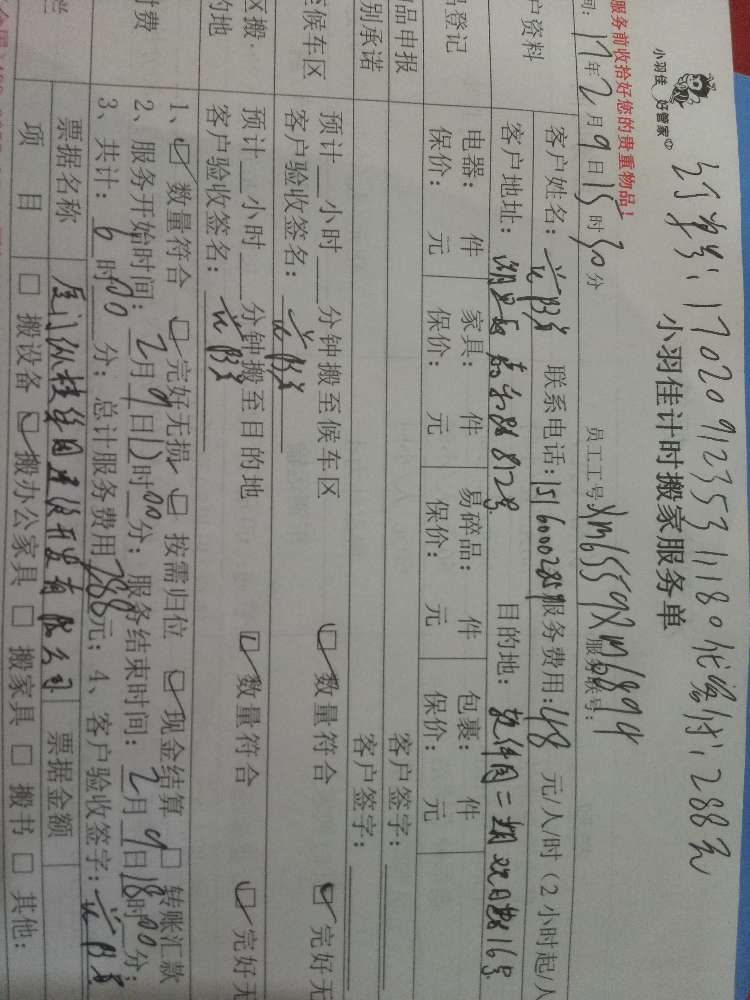 订单号：1702091235311180 代驾付：288元
小羽佳 好管家
小羽佳计时搬家服务单
服务前收拾好您的贵重物品！
间：17年2月9日15时30分 员工工号：XM6559 XM6894 服务联号：
户资料
客户姓名： 联系电话：15160002859 服务费用：48 元/人/时（2小时起/人
客户地址： 812号 目的地：软件园二期观日路16号
品登记
电器： 件 家具： 件 易碎品： 件 包裹： 件
保价： 元 保价： 元 保价： 元 保价： 元
品申报 客户签字：
别承诺 客户签字：
至候车区
预计 小时 分钟搬至候车区 数量符合 完好无
客户验收签名：
区搬·
的地
预计 小时 分钟搬至目的地 数量符合 完好无
客户验收签名：
时费
1、 数量符合 完好无损 按需归位 现金结算 转账汇款
2、服务开始时间：2月9日 时00分；服务结束时间：2月9日18时00分；
3、共计：6时00分；总计服务费用288元；4、客户验收签字：
票据名称 厦门 开发有限公司 票据金额
项 目 □ 搬设备 搬办公家具 □ 搬家具 □ 搬书 □ 其他：